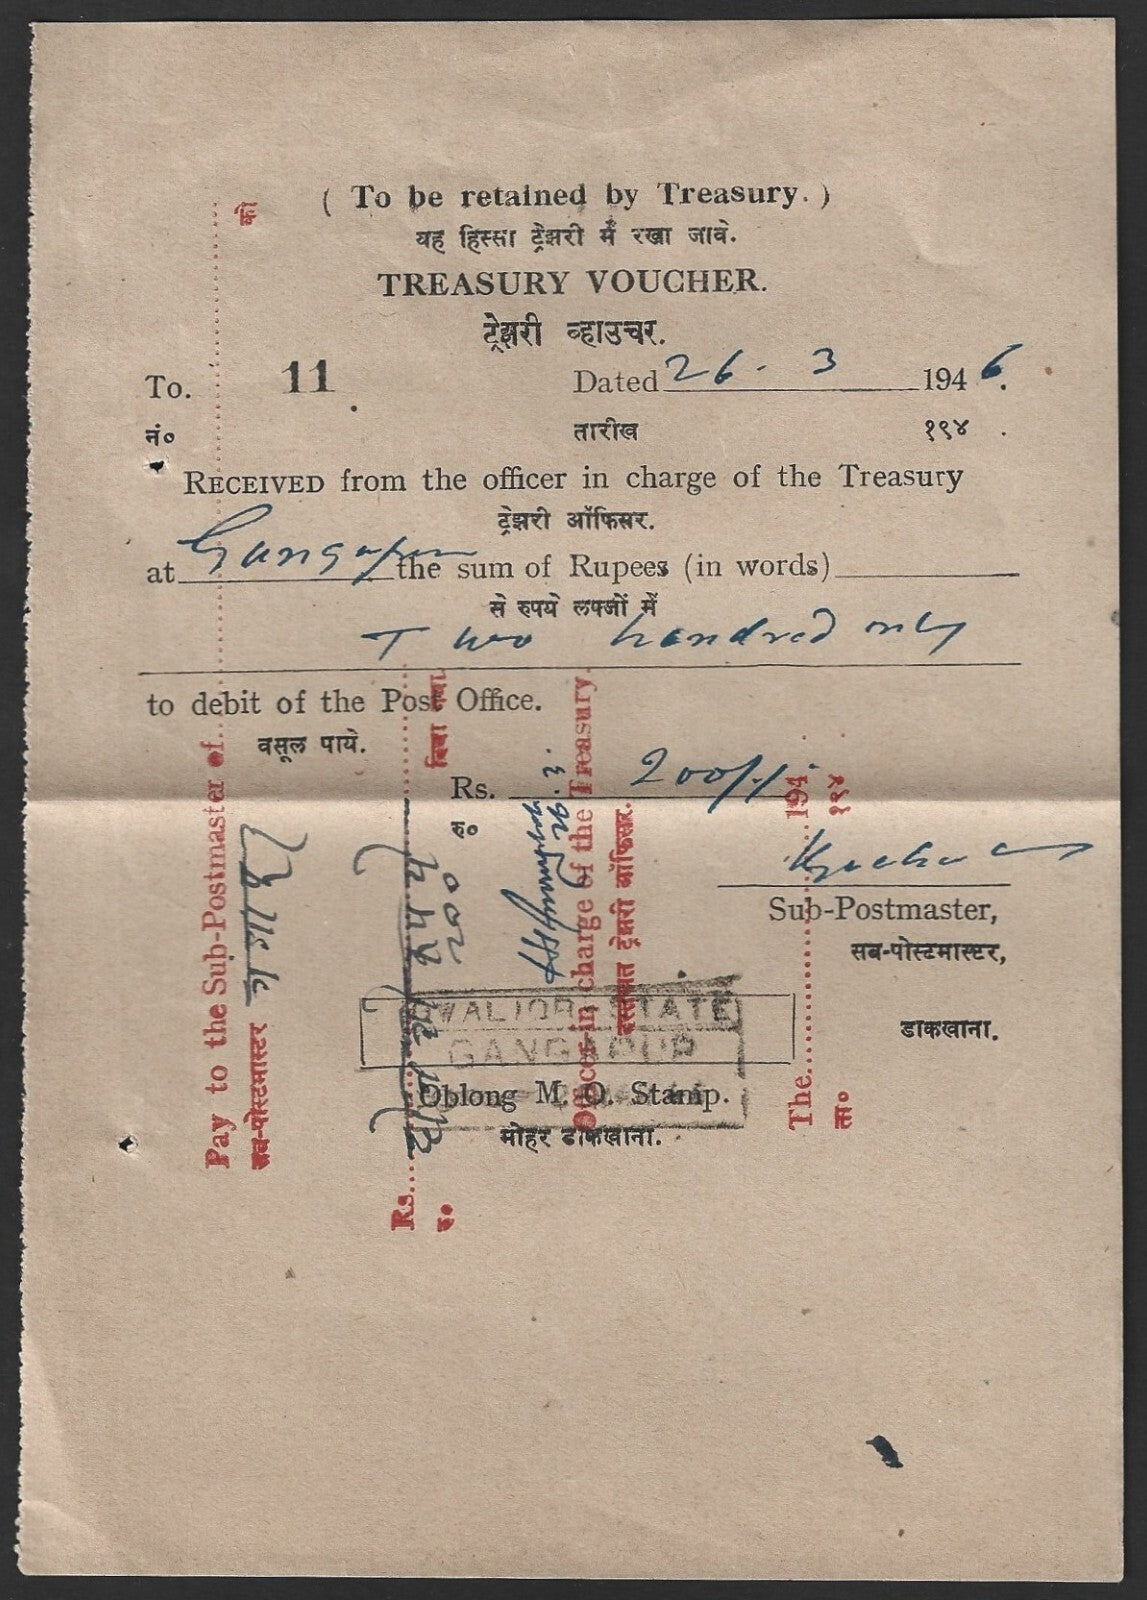 ( To be retained by Treasury. )
यह हिस्सा ट्रेझरी में रखा जावे.
TREASURY VOUCHER.
ट्रेझरी व्हाउचर.
To. 11 Dated 26 . 3 1946.
नं० तारीख १९४ .
RECEIVED from the officer in charge of the Treasury
ट्रेझरी ऑफिसर.
at Gangapur the sum of Rupees (in words)
से रुपये लफ्जों में
Two hundred only
to debit of the Post Office.
वसूल पाये.
Rs. 200/-/-
रु०
Sub-Postmaster,
सब-पोस्टमास्टर,
डाकखाना.
GWALIOR STATE
GANGAPUR
Oblong M. O. Stamp.
मोहर डाकखाना.
Pay to the Sub-Postmaster of
सब-पोस्टमास्टर को
Rs. दो सौ रुपये
रु० २०० दिया गया.
26.3.
Officer in charge of the Treasury
दस्तखत ट्रेझरी ऑफिसर.
The 194
ता० १९४